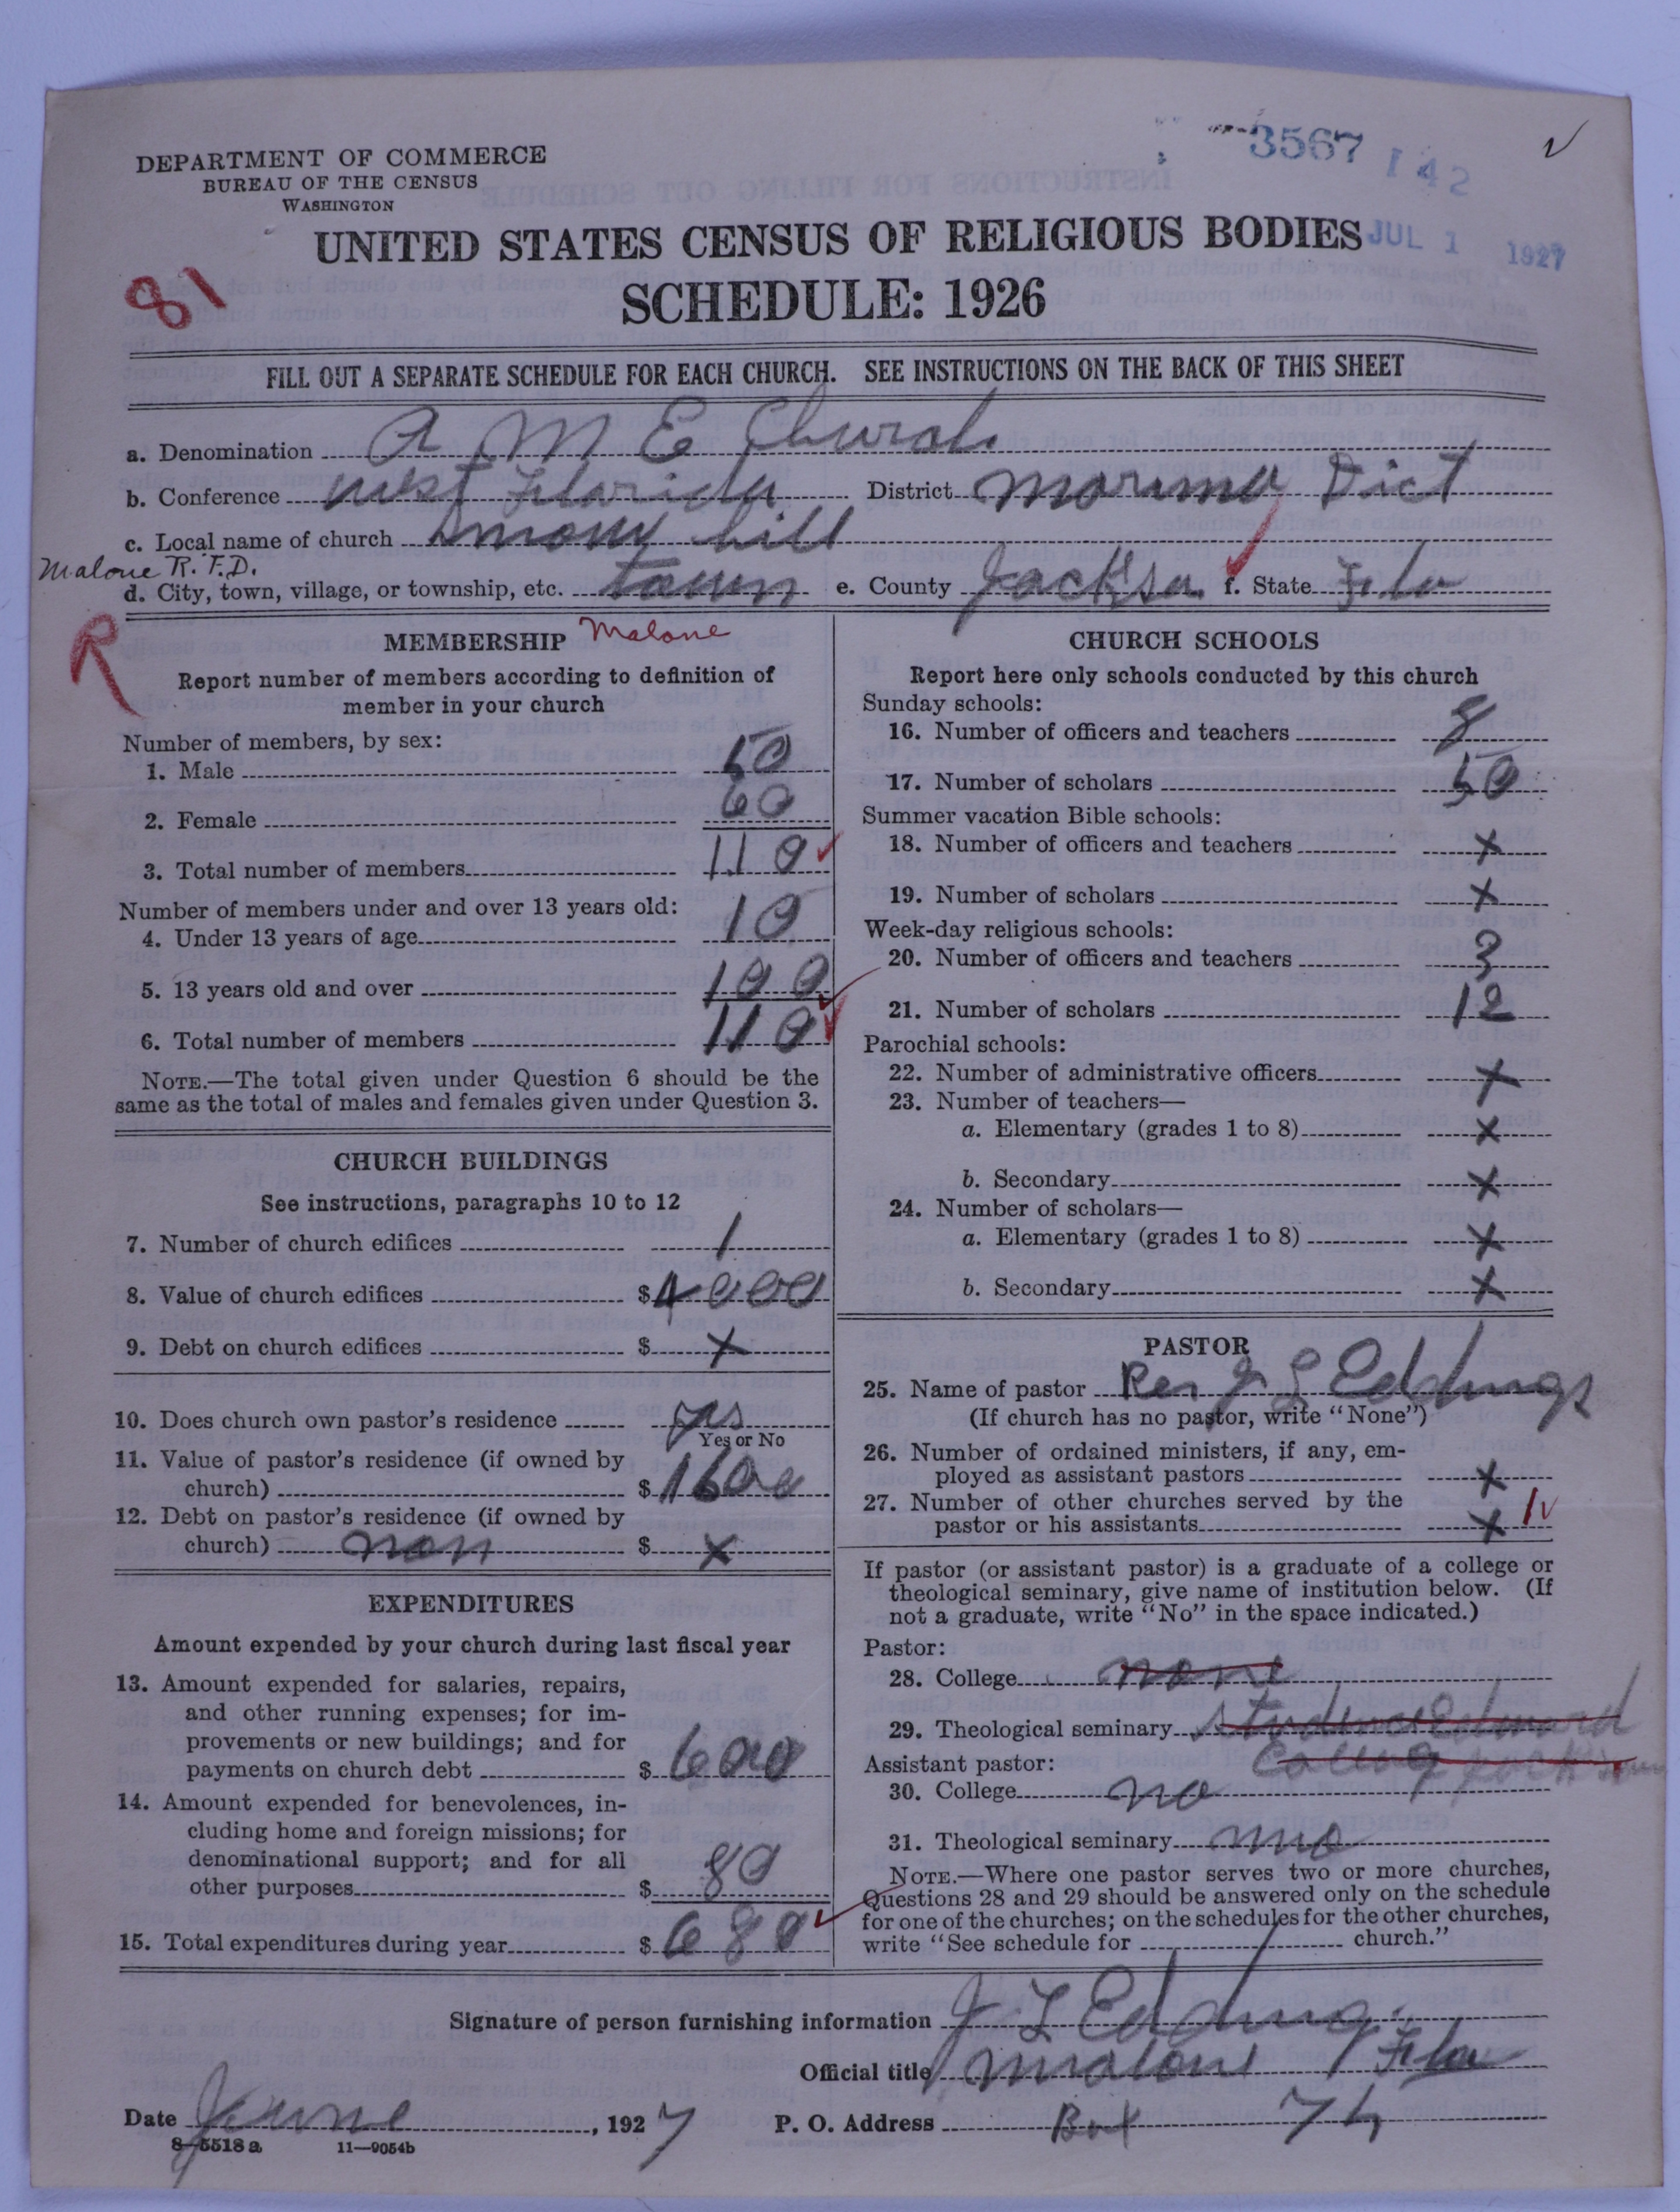 3567 142
DEPARTMENT OF COMMERCE
BUREAU OF THE CENSUS
WASHINGTON
UNITED STATES CENSUS OF RELIGIOUS BODIES
JUL 1 1927
SCHEDULE: 1926
81
FILL OUT A SEPARATE SCHEDULE FOR EACH CHURCH. SEE INSTRUCTIONS ON THE BACK OF THIS SHEET
a. Denomination A M E Church
b. Conference West Florida District Dict
c. Local name of church hill
Malone R. F. D.
d. City, town, village, or township, etc. town e. County Jackson f. State Fla
R
MEMBERSHIP Malone
Report number of members according to definition of
member in your church
Number of members, by sex:
1. Male 50
2. Female 60
3. Total number of members 110
Number of members under and over 13 years old:
4. Under 13 years of age 10
5. 13 years old and over 100
6. Total number of members 110
NOTE.—The total given under Question 6 should be the
same as the total of males and females given under Question 3.
CHURCH BUILDINGS
See instructions, paragraphs 10 to 12
7. Number of church edifices 1
8. Value of church edifices $4000
9. Debt on church edifices $ x
10. Does church own pastor's residence yes
Yes or No
11. Value of pastor's residence (if owned by
church) $1600
12. Debt on pastor's residence (if owned by
church) non $ x
EXPENDITURES
Amount expended by your church during last fiscal year
13. Amount expended for salaries, repairs,
and other running expenses; for im-
provements or new buildings; and for
payments on church debt $ 600
14. Amount expended for benevolences, in-
cluding home and foreign missions; for
denominational support; and for all
other purposes $ 80
15. Total expenditures during year $ 680
CHURCH SCHOOLS
Report here only schools conducted by this church
Sunday schools:
16. Number of officers and teachers 8
17. Number of scholars 50
Summer vacation Bible schools:
18. Number of officers and teachers x
19. Number of scholars x
Week-day religious schools:
20. Number of officers and teachers 3
21. Number of scholars 12
Parochial schools:
22. Number of administrative officers x
23. Number of teachers—
a. Elementary (grades 1 to 8) x
b. Secondary x
24. Number of scholars—
a. Elementary (grades 1 to 8) x
b. Secondary x
PASTOR
25. Name of pastor Rev J L
(If church has no pastor, write "None")
26. Number of ordained ministers, if any, em-
ployed as assistant pastors x
27. Number of other churches served by the
pastor or his assistants x 1
If pastor (or assistant pastor) is a graduate of a college or
theological seminary, give name of institution below. (If
not a graduate, write "No" in the space indicated.)
Pastor:
28. College none
29. Theological seminary Edward
Assistant pastor:
30. College no
31. Theological seminary
NOTE.—Where one pastor serves two or more churches,
Questions 28 and 29 should be answered only on the schedule
for one of the churches; on the schedules for the other churches,
write "See schedule for church."
Signature of person furnishing information J L
Official title Malone Fla
Date June, 1927 P. O. Address Box 74
8—5518 a 11—9054b